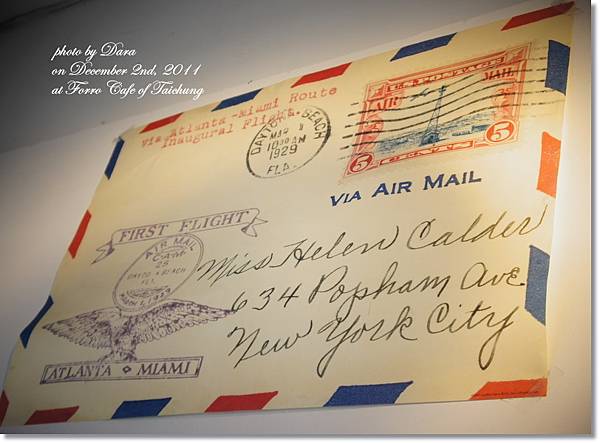 photo by Dara
on December 2nd, 2011
at Forro Cafe of Taichung
via Atlanta-Miami Route
Inaugural Flight.
DAYTONA BEACH
MAR 1
1929
FLA.
U.S. POSTAGE
AIR MAIL
5 CENTS 5
VIA AIR MAIL
FIRST FLIGHT
AIR MAIL
C.A.M.
25
DAYTONA BEACH
FLA.
ATLANTA MIAMI
Miss Helen Calder
634 Popham Ave
New York City